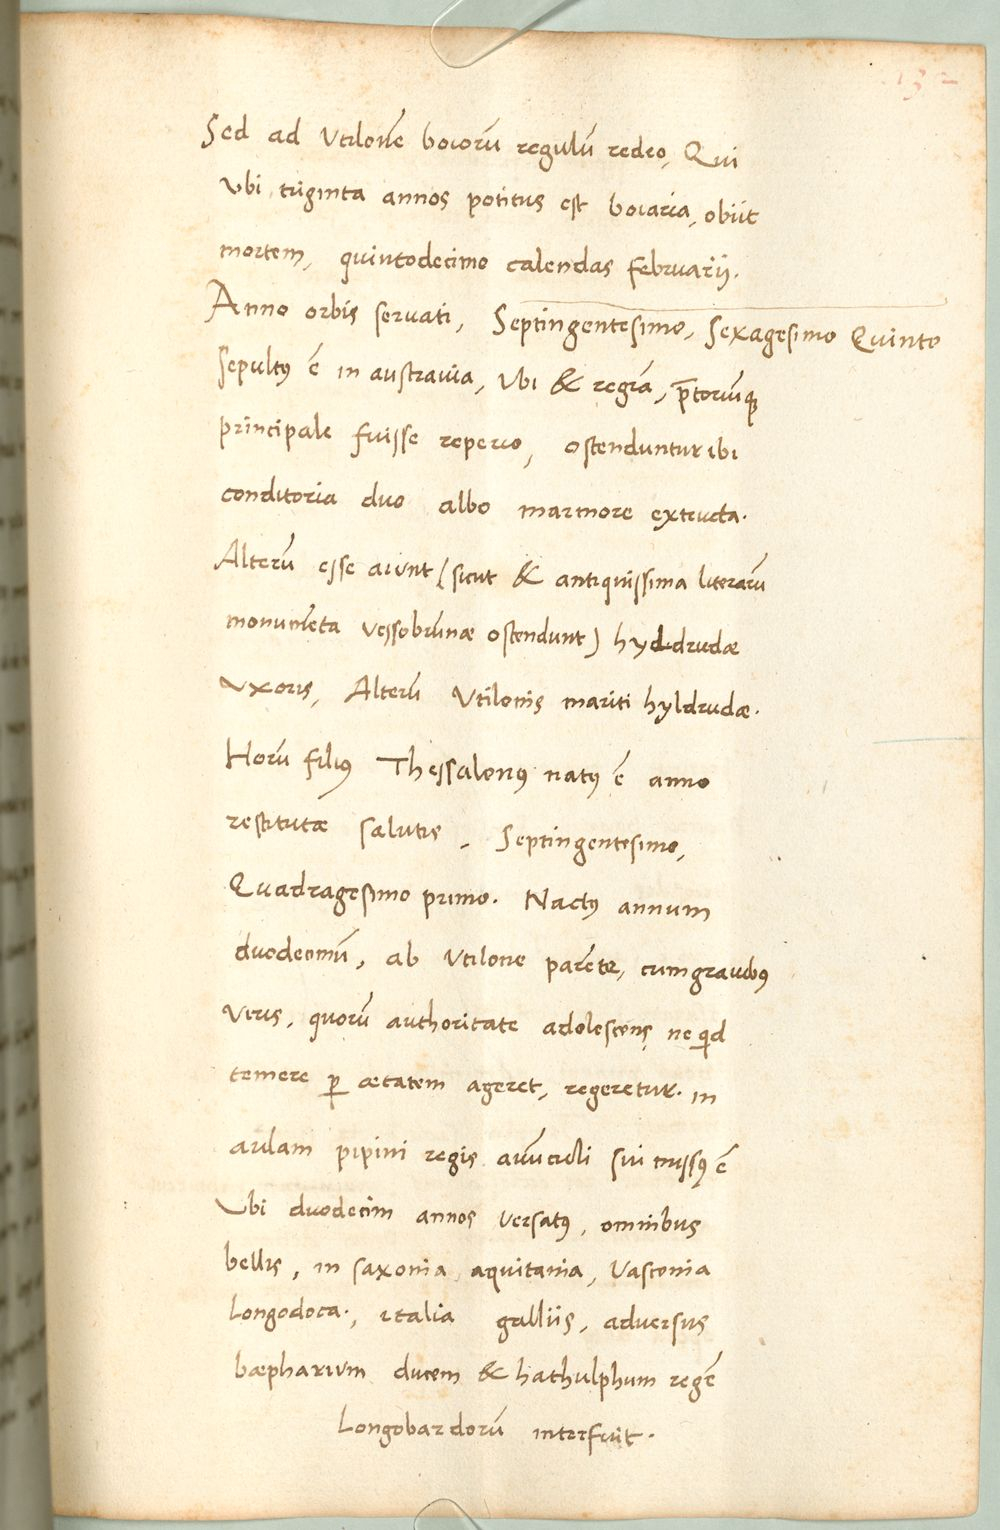 132
Sed ad Vtilonē boiorū regulū redeo, Qui
Vbi triginta annos potitus est boiaria, obiit
mortem, quintodecimo calendas februarij.
Anno orbis seruati, Septingentesimo, Sexagesimo Quinto
sepultꝰ ē in austrauia, Vbi & regiā, p̄toriūqꝫ
principale fuisse reperio, ostenduntur ibi
conditoria duo albo marmore extructa.
Alterū esse aiunt (sicut & antiquissima literarū
monumēta Vessobrūnæ ostendunt) hyldrudæ
Vxoris, Alterū Vtilonis mariti hyldrudæ.
Horū filiꝰ Thessalonꝰ natꝰ ē anno
restitutæ salutis, Septingentesimo,
Quadragesimo primo. Nactꝰ annum
duodecimū, ab Vtilone parēte, cum grauibꝰ
Viris, quorū authoritate adolescens ne qͥd
temere ꝑ ætatem ageret, regeretur. in
aulam pipini regis auūculi sui missꝰ ē
Vbi duodecim annos Versatꝰ, omnibus
bellis, in saxonia, aquitania, Vasconia
Longodoca., italia galliis, aduersus
bæpharium ducem & hathulphum regē
Longobardorū interfuit.